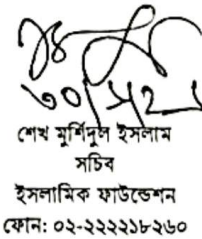 শেখ মুর্শিদুল ইসলাম
সচিব
ইসলামিক ফাউন্ডেশন
ফোন: ০২-২২২২১৮২৬০